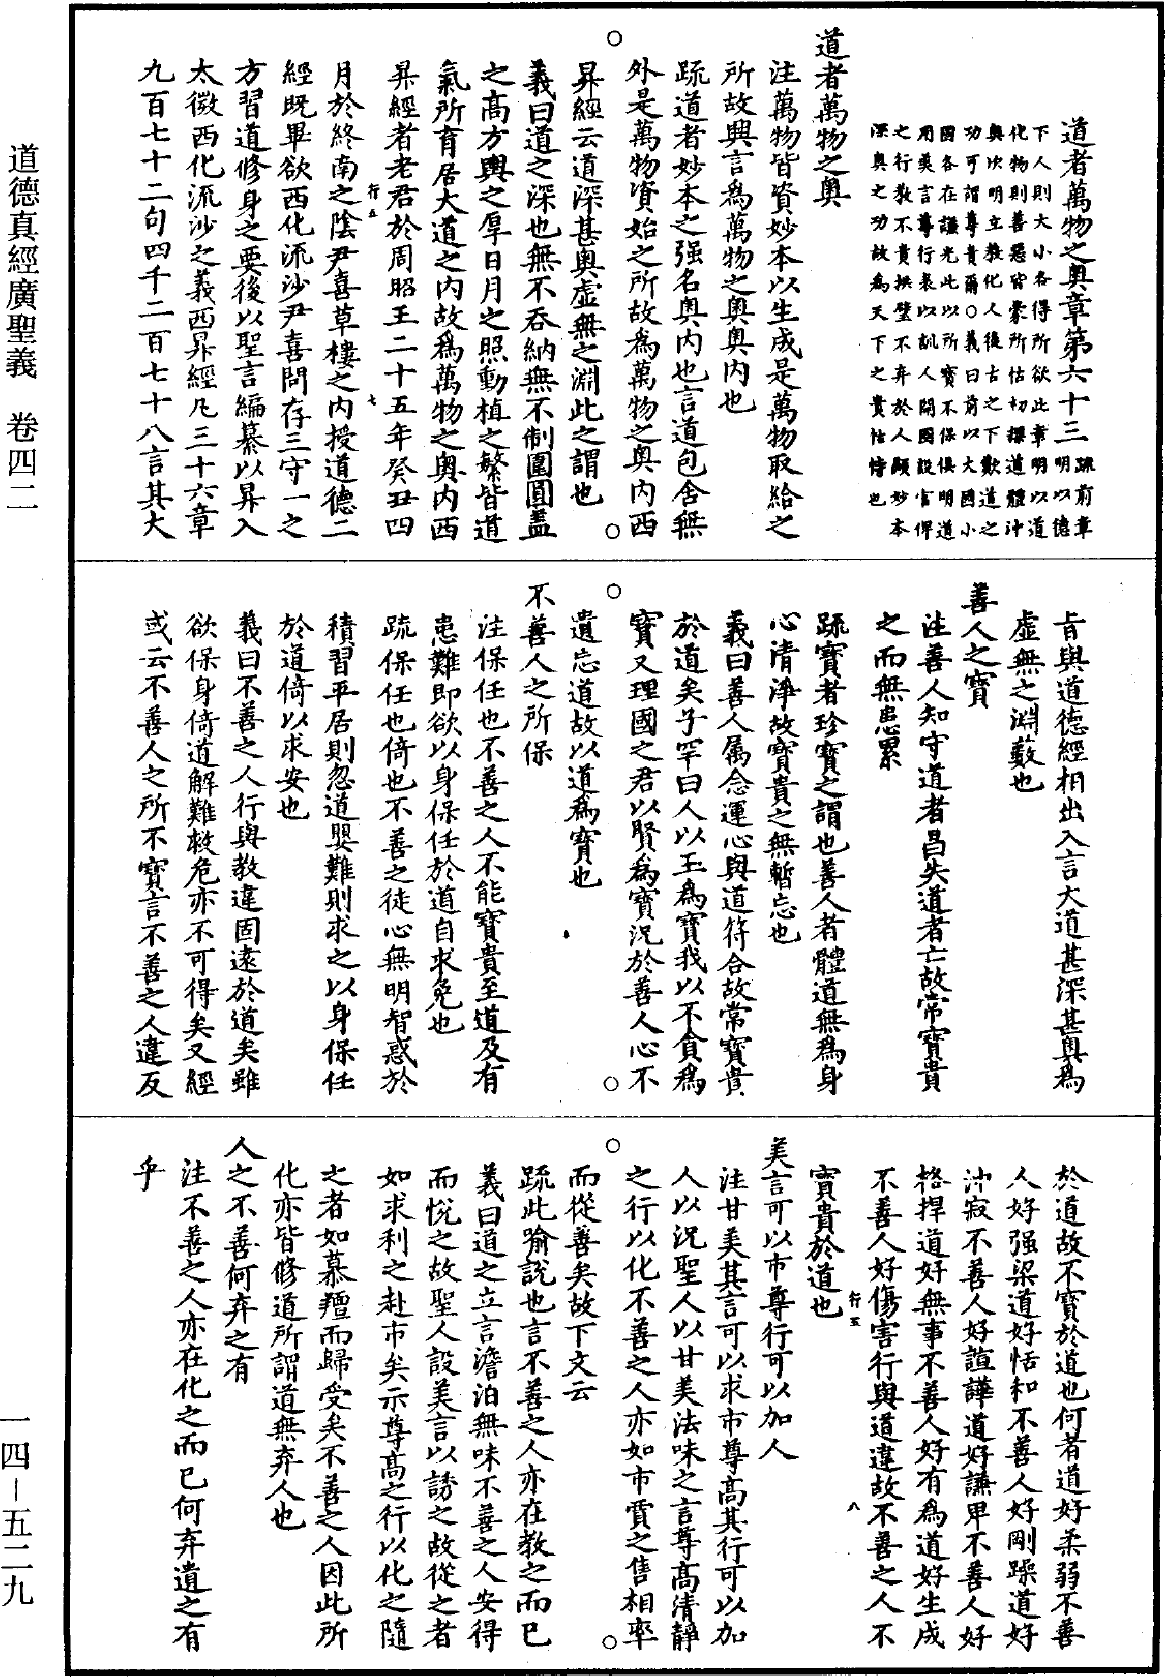 道德真經廣聖義　卷四二
一四—五二九
道者萬物之奧章第六十三
疏前章明以德
下人則大小各得所欲此章明以道
化物則善惡皆蒙所估初標道體沖
奧次明立教化人後古之下歎道之
功可謂尊貴爾○義曰前以大國小
國各在謙光此以所寶不保俱明道
用美言尊行衰以訓人開國設官俾
之行教不貴拱璧不弃於人顯妙本
深奧之功故為天下之貴恃也
道者萬物之奧
注萬物皆資妙本以生成是萬物取給之
所故興言為萬物之奧奧內也
疏道者妙本之强名奧內也言道包含無
外是萬物資始之所故為萬物之奧內西
昇經云道深甚奧虛無之淵此之謂也
義曰道之深也無不吞納無不制圍圓蓋
之高方輿之厚日月之照動植之繁皆道
氣所育居大道之內故為萬物之奧內西
昇經者老君於周昭王二十五年癸丑四
行五　七
月於終南之陰尹喜草樓之內授道德二
經既畢欲西化流沙尹喜問存三守一之
方習道修身之要後以聖言編綦以昇入
太微西化流沙之義西昇經凡三十六章
九百七十二句四千二百七十八言其大
旨與道德經相出入言大道甚深甚奧為
虛無之淵藪也
善人之寶
注善人知守道者昌失道者亡故常寶貴
之而無患累
疏寶者珍寶之謂也善人者體道無為身
心清淨故寶貴之無暫忘也
義曰善人屬念運心與道符合故常寶貴
於道矣子罕曰人以玉為寶我以不貪為
寶又理國之君以賢為寶況於善人心不
遺忘道故以道為寶也
不善人之所保
注保任也不善之人不能寶貴至道及有
患難即欲以身保任於道自求免也
疏保任也倚也不善之徒心無明智惑於
積習平居則忽道嬰難則求之以身保任
於道倚以求安也
義曰不善之人行與教違固遠於道矣雖
欲保身倚道解難救危亦不可得矣又經
或云不善人之所不寶言不善之人違反
於道故不寶於道也何者道好柔弱不善
人好强梁道好恬和不善人好剛躁道好
沖寂不善人好諠譁道好謙卑不善人好
格捍道好無事不善人好有為道好生成
不善人好傷害行與道違故不善之人不
行五　八
寶貴於道也
美言可以市尊行可以加人
注甘美其言可以求市尊高其行可以加
人以況聖人以甘美法味之言尊高清靜
之行以化不善之人亦如市賈之售相率
而從善矣故下文云
疏此喻說也言不善之人亦在教之而已
義曰道之立言澹泊無味不善之人安得
而悅之故聖人設美言以誘之故從之者
如求利之赴市矣示尊高之行以化之隨
之者如慕羶而歸受矣不善之人因此所
化亦皆修道所謂道無弃人也
人之不善何弃之有
注不善之人亦在化之而已何弃遺之有
乎